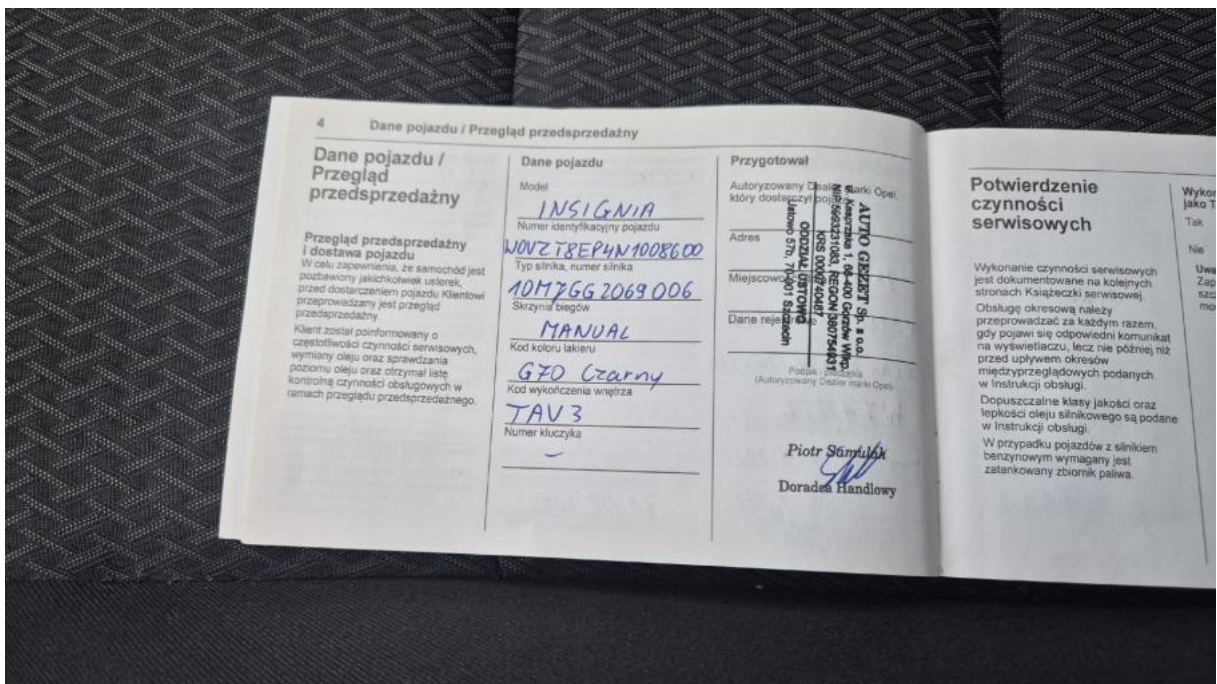 4 Dane pojazdu / Przegląd przedsprzedażny
Dane pojazdu /
Przegląd
przedsprzedażny
Przegląd przedsprzedażny
i dostawa pojazdu
W celu zapewnienia, że samochód jest
pozbawiony jakichkolwiek usterek,
przed dostarczeniem pojazdu Klientowi
przeprowadzany jest przegląd
przedsprzedażny.
Klient został poinformowany o
częstotliwości czynności serwisowych,
wymiany oleju oraz sprawdzania
poziomu oleju oraz otrzymał listę
kontrolną czynności obsługowych w
ramach przeglądu przedsprzedażnego.
Dane pojazdu
Model
INSIGNIA
Numer identyfikacyjny pojazdu
W0VZT8EP4N1008600
Typ silnika, numer silnika
10M7GG2069006
Skrzynia biegów
MANUAL
Kod koloru lakieru
G70 Czarny
Kod wykończenia wnętrza
TAV3
Numer kluczyka
–
Przygotował
Autoryzowany Dealer marki Opel,
który dostarczył pojazd
Adres
Miejscowość
Dane
AUTO GEZET Sp. z o.o.
ul. Kasprzaka 1, 66-400 Gorzów Wlkp.
NIP 5993231083, REGON 380754931
KRS 0000740487
ODDZIAŁ USTOWO
Ustowo 57b, 70-001 Szczecin
Podpis i pieczątka
(Autoryzowany Dealer marki Opel)
Piotr Samulak
Doradca Handlowy
Potwierdzenie
czynności
serwisowych
Wykonanie czynności serwisowych
jest dokumentowane na kolejnych
stronach Książeczki serwisowej.
Obsługę okresową należy
przeprowadzać za każdym razem,
gdy pojawi się odpowiedni komunikat
na wyświetlaczu, lecz nie później niż
przed upływem okresów
międzyprzeglądowych podanych
w Instrukcji obsługi.
Dopuszczalne klasy jakości oraz
lepkości oleju silnikowego są podane
w Instrukcji obsługi.
W przypadku pojazdów z silnikiem
benzynowym wymagany jest
zatankowany zbiornik paliwa.
jako T
Tak
Nie